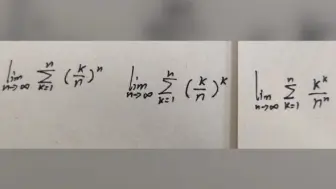 lim n→∞ ∑ k=1 n (k/n)^n
lim n→∞ ∑ k=1 n (k/n)^k
lim n→∞ ∑ k=1 n k^k/n^n